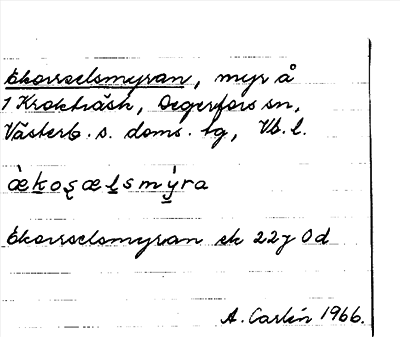 Ekorrselsmyran, myr å
1 Krokträsk, Degerfors sn,
Västerb. s. doms. tg, Vb. l.
æ̀k̲oʂæl̲smý̲ra
Ekorrselsmyran ek 22 j 0 d
A. Carlén 1966.